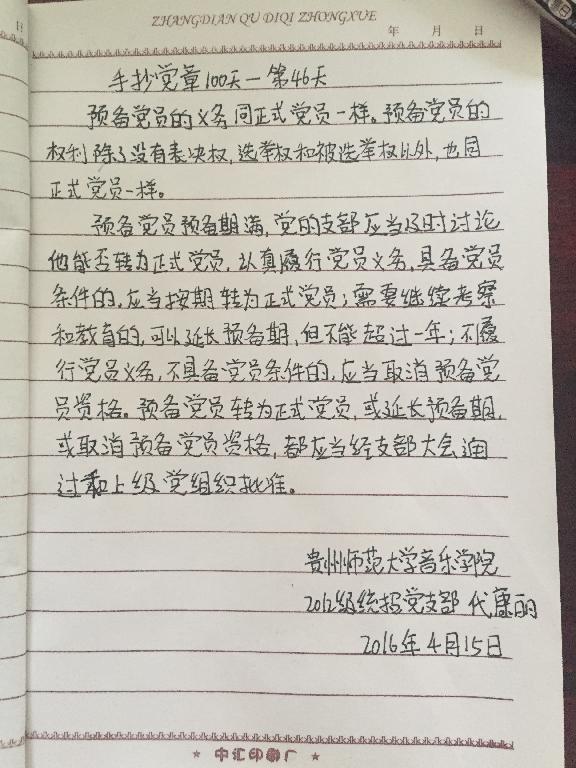 ZHANGDIAN QU DIQI ZHONGXUE
日
年 月 日
手抄党章100天—第46天
预备党员的义务同正式党员一样。预备党员的
权利除了没有表决权,选举权和被选举权以外,也同
正式党员一样。
预备党员预备期满,党的支部应当及时讨论
他能否转为正式党员,认真履行党员义务,具备党员
条件的,应当按期转为正式党员;需要继续考察
和教育的,可以延长预备期,但不能超过一年;不履
行党员义务,不具备党员条件的,应当取消预备党
员资格。预备党员转为正式党员,或延长预备期,
或取消预备党员资格,都应当经支部大会通
过和上级党组织批准。
贵州师范大学音乐学院
2012级统招党支部 代康丽
2016年4月15日
★ 中汇印刷厂 ★